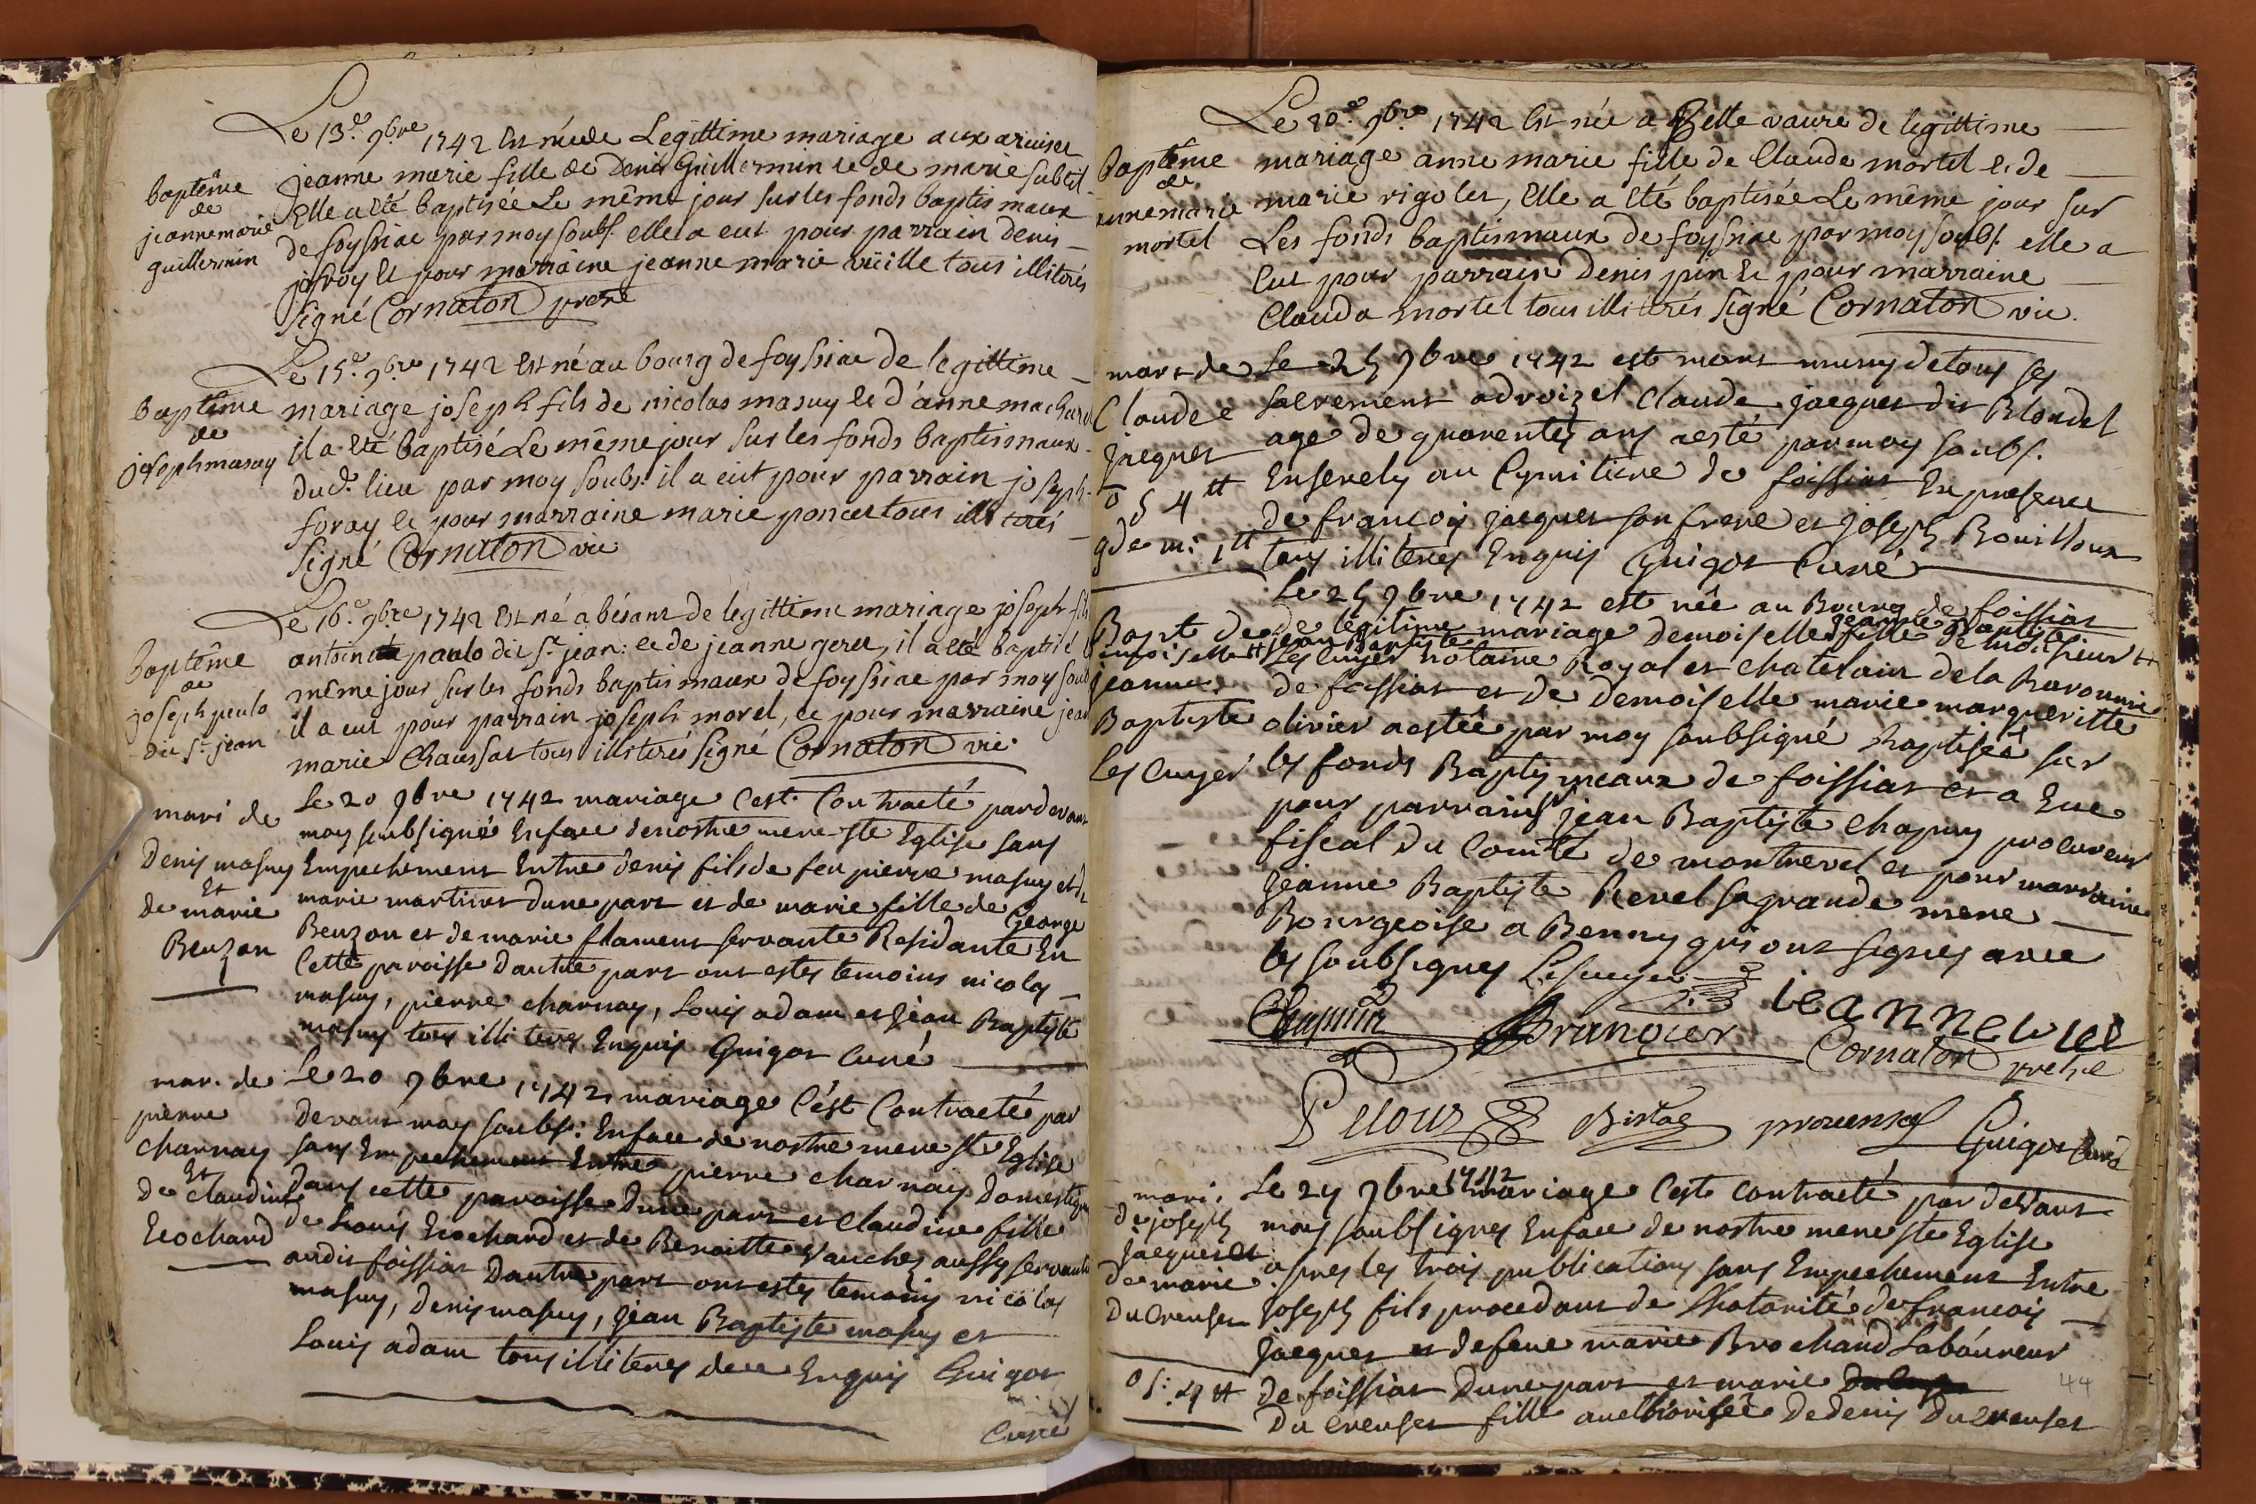 Le 13e 9bre 1742 Est née de Legittime mariage aux
baptême
de
jeanne marie
guillermin
jeanne marie fille de Denis Guillermin et de marie subtil
Elle a été baptisée Le même jour sur les fonds baptismaux
de foyssiac par moy soubs. elle a eut pour parrain denis
jofroy et pour marraine jeanne marie vieille tous illiterés
signé Cornaton pretre
Le 15e 9bre 1742 Est né au bourg de foyssiac de legittime
baptême
de
joseph masuy
mariage joseph fils de nicolas masuy et d'anne machard
il a été baptisé Le même jour sur les fonds baptismaux
dud. lieu par moy soubs. il a eut pour parrain joseph
foray et pour marraine marie poncet tous illiterés
signé Cornaton vic
Le 16e 9bre 1742 Est né a bésant de legittime mariage joseph fils
baptême
de
joseph paulo
dit st. jean
antoine paulo dit st. jean: et de jeanne geret, il a été baptisé le
même jour sur les fonds baptismaux de foyssiac par moy soub
il a eut pour parrain joseph morel, et pour marraine jean
marie Chaussat tous illiterés signé Cornaton vic.
mari de
Denis masuy
Et
de marie
Beuzon
Le 20 9bre 1742 mariage Cest Contracté pardevant
moy soubsigné Enface de nostre mere ste Eglise sans
Empechement Entre denis fils de feu pierre masuy et de
marie martinet dune part et de marie fille de George
Beuzon et de marie flament servante Residante En
Cette paroisse dautre part ont estes temoins nicolas
masuy, pierre charnay, Louis adam et jean Baptiste
masuy tous illiteres Enquis Guigot Curé
mar. de
pierre
charnay
Et
de claudine
Ecochard
Le 20 9bre 1742 mariage C'est Contracté par
devant moy soubs: Enface de nostre mere ste Eglise
sans Empechement Entre pierre charnay Domestique
Dans cette paroisse Dune part et Claudine fille
de Louis Ecochard et de Benoitte Vauchez aussy servante
audit foissiat Dautre part ont estes temoins nicolas
masuy, denis masuy, jean Baptiste masuy et
Louis adam tous illiteres de ce Enquis Guigot
Curé
Le 20e 9bre 1742 Est née a Belle vavre de legittime
Baptême
de
anne marie
mortel
mariage anne marie fille de Claude mortel et de
marie rigolet, Elle a été baptisée Le même jour sur
Les fonds baptismaux de foyssiac par moy soubs. elle a
Eut pour parrain Denis pin et pour marraine
Clauda mortel tous illiterés signé Cornaton vic.
mort de
Claude
jaques
Le 25 9bre 1742 est mort muny de tous ses
sacrements claude jaques dit Blondel
age de quarentes ans aesté par moy soubs.
Ensevely au Cymitiere de foissiat En presence
de francois jaques son frere et joseph Bouilloux
tous illiteres Enquis Guigot Curé
Bapt de
demoiselle
jeanne
Baptiste
Lescuyer
Le 25 9bre 1742 est née au Bourg de foissiat
de legitime mariage Demoiselle jeanne Baptiste fille de monsieur
jean Baptiste
Lescuyer notaire Royal et chatelain de la Baronnie
de foissiat et de Demoiselle marie margueritte
olivier aestée par moy soubsigné Baptisée sur
les fonds Baptismeaux de foissiat et a Eue
pour parrain sr jean Baptiste chapuy procureur
fiscal du Comté de montrevel et pour marraine
jeanne Baptiste Revel sa grande mere
Bourgeoise a Benny qui ont signés avec
les soubsignes Lescuyer
Chapuy Brangier jeanne
Cornaton pretre
Pelouz provensal Guigot Curé
mari.
de joseph
jaques et
de marie
Du Creuset
Le 27 9bre 1742 mariage Cest contracté par devant
moy soubsigné Enface de nostre mere ste Eglise
apres les trois publications sans Empechement Entre
joseph fils procedant de Lhotorité de francois
jaques et de feue marie Brochand Laboureur
de foissiat Dune part et marie
Du Creuset fille authorisée de denis Du Creuset
44